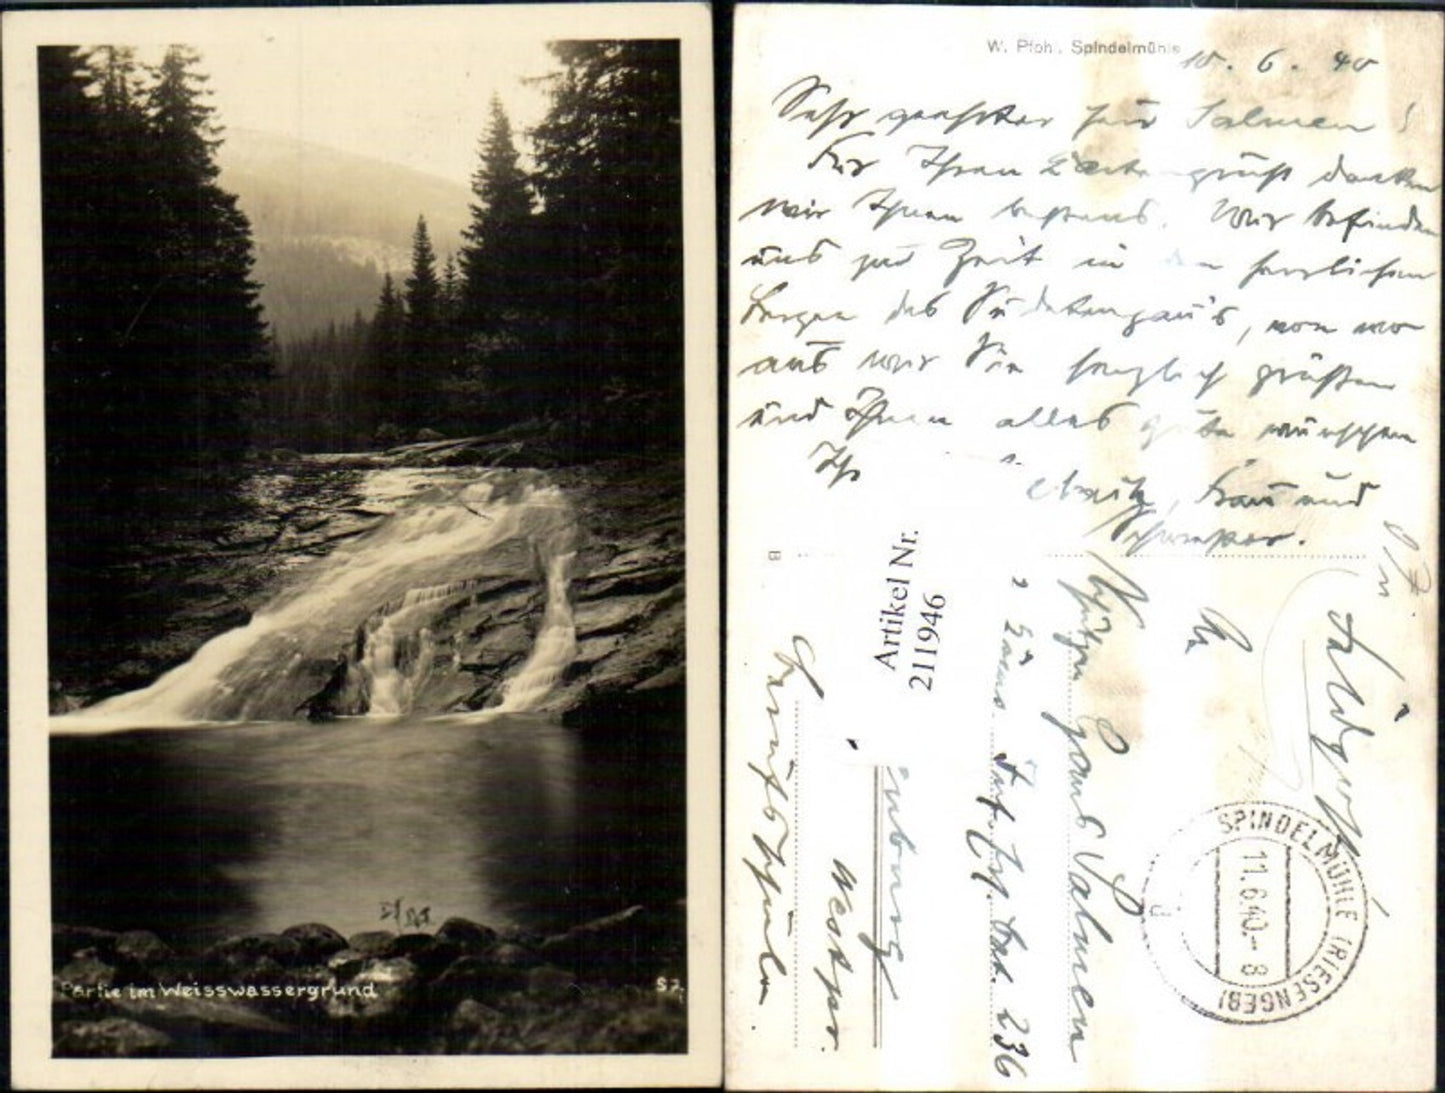 Partie im Weisswassergrund
W. Pfohl, Spindelmühle
10. 6. 40
Sehr geehrter Herr Salmen!
Für Ihren Kartengruß danken
wir Ihnen bestens. Wir befinden
uns zur Zeit in den herrlichen
Bergen des Sudetengau's, von wo
aus wir Sie herzlich grüßen
und Ihnen alles Gute wünschen
Ihr
Frau und
Artikel Nr.
2111946
Feldpost
An
Schützen Hans Salmen
Inf. Ers. Batl. 236
Westpr.
SPINDELMÜHLE (RIESENGEB)
11.6.40.-8
B